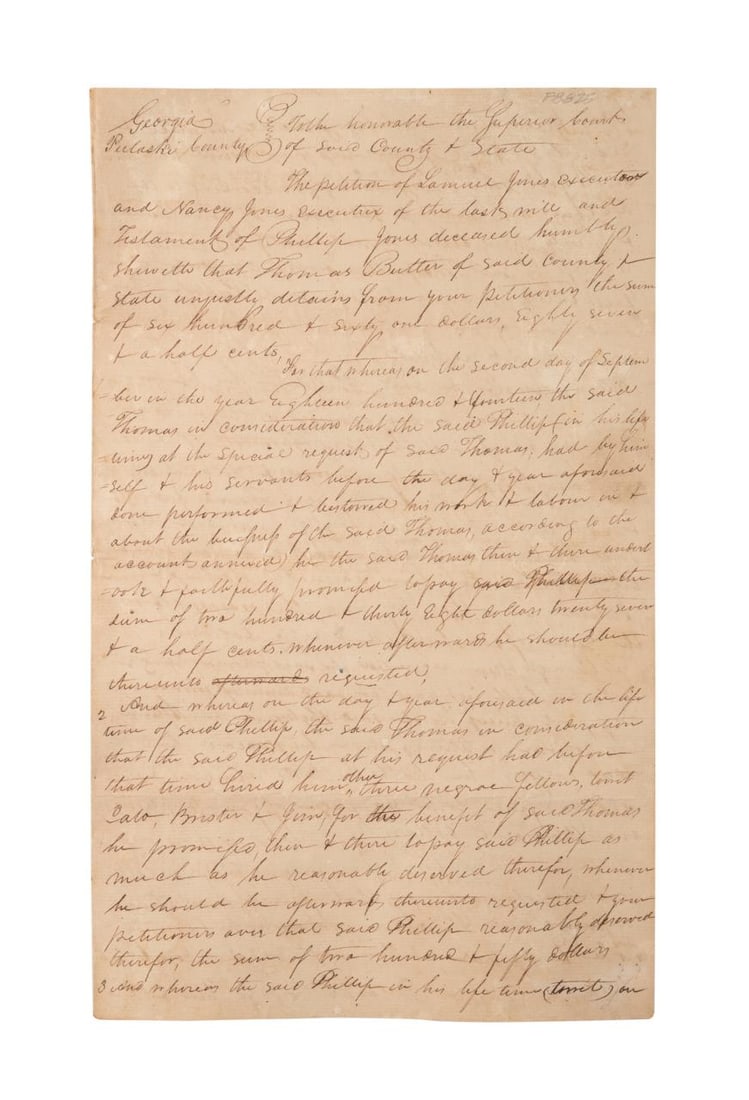 Georgia To the honorable the Superior Court
Pulaski County of said County & State
The petition of Samuel Jones executor
and Nancy Jones executrix of the last will and
Testament of Phillip Jones deceased humbly
sheweth that Thomas Butler of said county &
state unjustly detains from your petitioners the sum
of six hundred & sixty one dollars, Eighty seven
& a half cents,
For that whereas on the second day of Septem
=ber in the year Eighteen hundred & fourteen the said
Thomas in consideration that the said Phillip (in his life
=time) at the special request of said Thomas, had by him
=self & his servants before the day & year aforesaid
done performed & bestowed his work & labour in &
about the business of the said Thomas, according to the
account annexed) he the said Thomas then & there undert
=ook & faithfully promised to pay said Phillip the
sum of two hundred & thirty Eight dollars twenty seven
& a half cents. whenever afterwards he should be
thereunto afterwards requested,
2 And whereas on the day & year aforesaid in the life
time of said Phillip, the said Thomas in consideration
that the said Phillip at his request had before
that time hired him other three negroe fellows, towit
Cato, Brister & Jim, for the benefit of said Thomas
he promised, then & there to pay said Phillip as
much as he reasonably deserved therefor, whenever
he should be afterwards thereunto requested & your
petitioners aver that said Phillip reasonably deserved
therefor, the sum of two hundred & fifty dollars
3 And whereas the said Phillip in his life time (towit) on